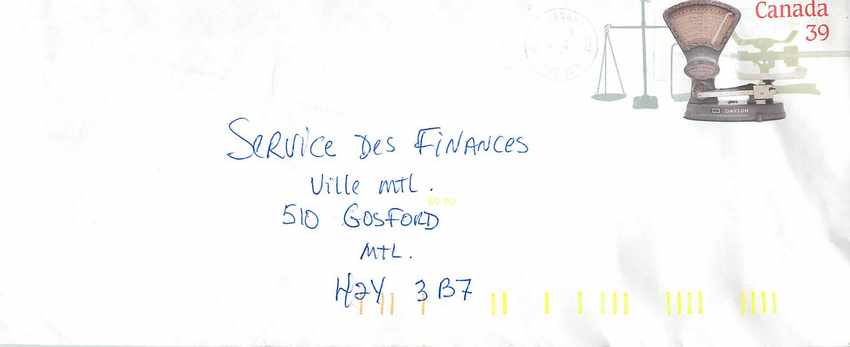 Canada
39
DAYTON
Service Des Finances
Ville mtl.
510 GOSFORD
MTL.
H2Y 3B7